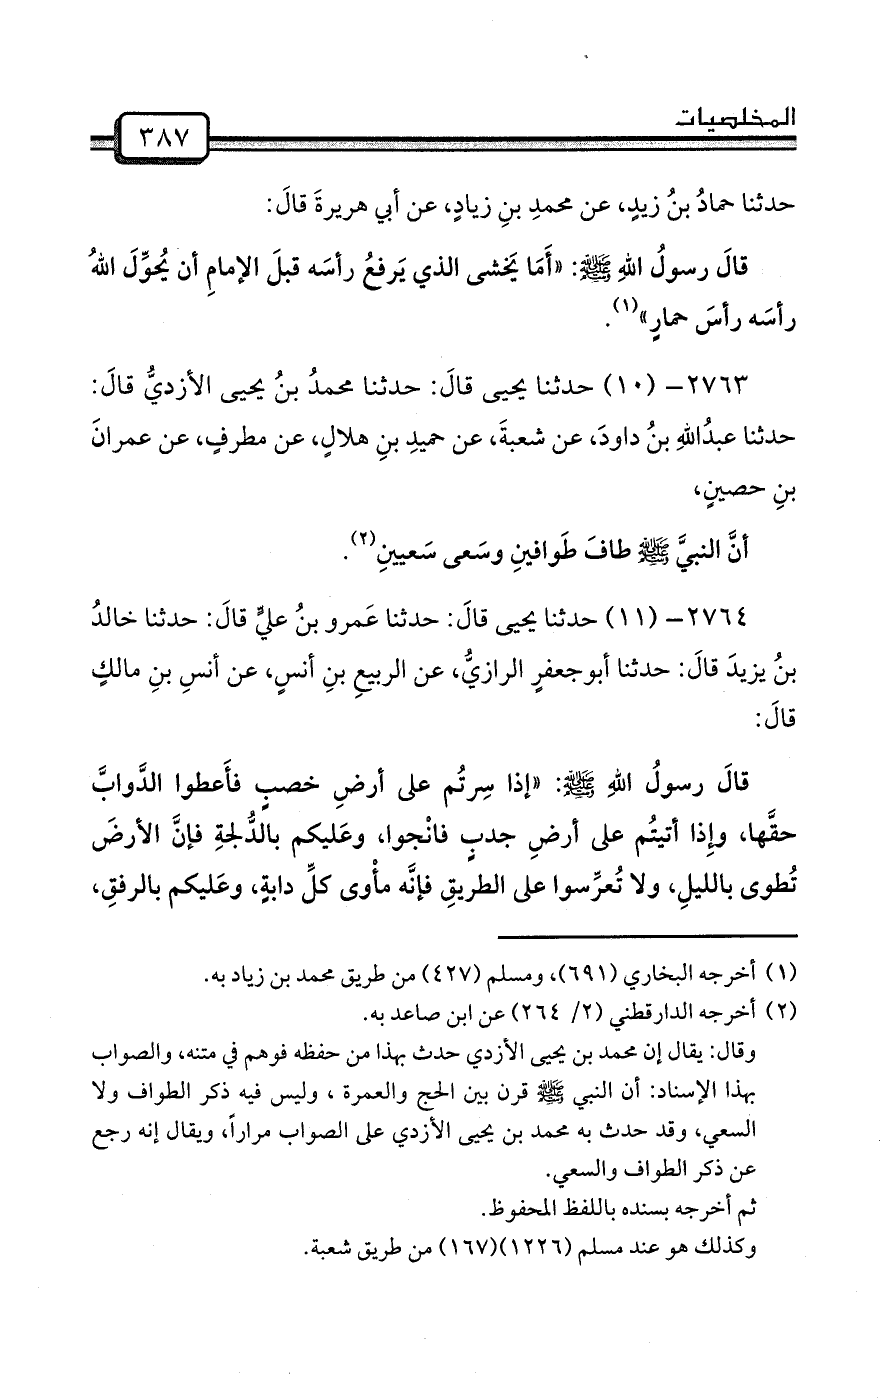 المخلصيات
٣٨٧
حدثنا حمادُ بنُ زيدٍ، عن محمدِ بنِ زيادٍ، عن أبي هريرةَ قالَ:
قالَ رسولُ اللهِ ﷺ: «أَمَا يَخشى الذي يَرفعُ رأسَه قبلَ الإمامِ أن يُحوِّلَ اللهُ
رأسَه رأسَ حمارٍ»(١).
٢٧٦٣- (١٠) حدثنا يحيى قالَ: حدثنا محمدُ بنُ يحيى الأزديُّ قالَ:
حدثنا عبدُاللهِ بنُ داودَ، عن شعبةَ، عن حميدِ بنِ هلالٍ، عن مطرفٍ، عن عمرانَ
بنِ حصينٍ،
أنَّ النبيَّ ﷺ طافَ طَوافينِ وسَعى سَعيينِ(٢).
٢٧٦٤- (١١) حدثنا يحيى قالَ: حدثنا عَمرو بنُ عليٍّ قالَ: حدثنا خالدُ
بنُ يزيدَ قالَ: حدثنا أبوجعفرٍ الرازيُّ، عن الربيعِ بنِ أنسٍ، عن أنسِ بنِ مالكٍ
قالَ:
قالَ رسولُ اللهِ ﷺ: «إذا سِرتُم على أرضِ خصبٍ فأَعطوا الدَّوابَّ
حقَّها، وإذا أتيتُم على أرضِ جدبٍ فانْجوا، وعَليكم بالدُّلجةِ فإنَّ الأرضَ
تُطوى بالليلِ، ولا تُعرِّسوا على الطريقِ فإنَّه مأْوى كلِّ دابةٍ، وعَليكم بالرفقِ،
(١) أخرجه البخاري (٦٩١)، ومسلم (٤٢٧) من طريق محمد بن زياد به.
(٢) أخرجه الدارقطني (٢/ ٢٦٤) عن ابن صاعد به.
وقال: يقال إن محمد بن يحيى الأزدي حدث بهذا من حفظه فوهم في متنه، والصواب
بهذا الإسناد: أن النبي ﷺ قرن بين الحج والعمرة ، وليس فيه ذكر الطواف ولا
السعي، وقد حدث به محمد بن يحيى الأزدي على الصواب مراراً، ويقال إنه رجع
عن ذكر الطواف والسعي.
ثم أخرجه بسنده باللفظ المحفوظ.
وكذلك هو عند مسلم (١٢٢٦)(١٦٧) من طريق شعبة.